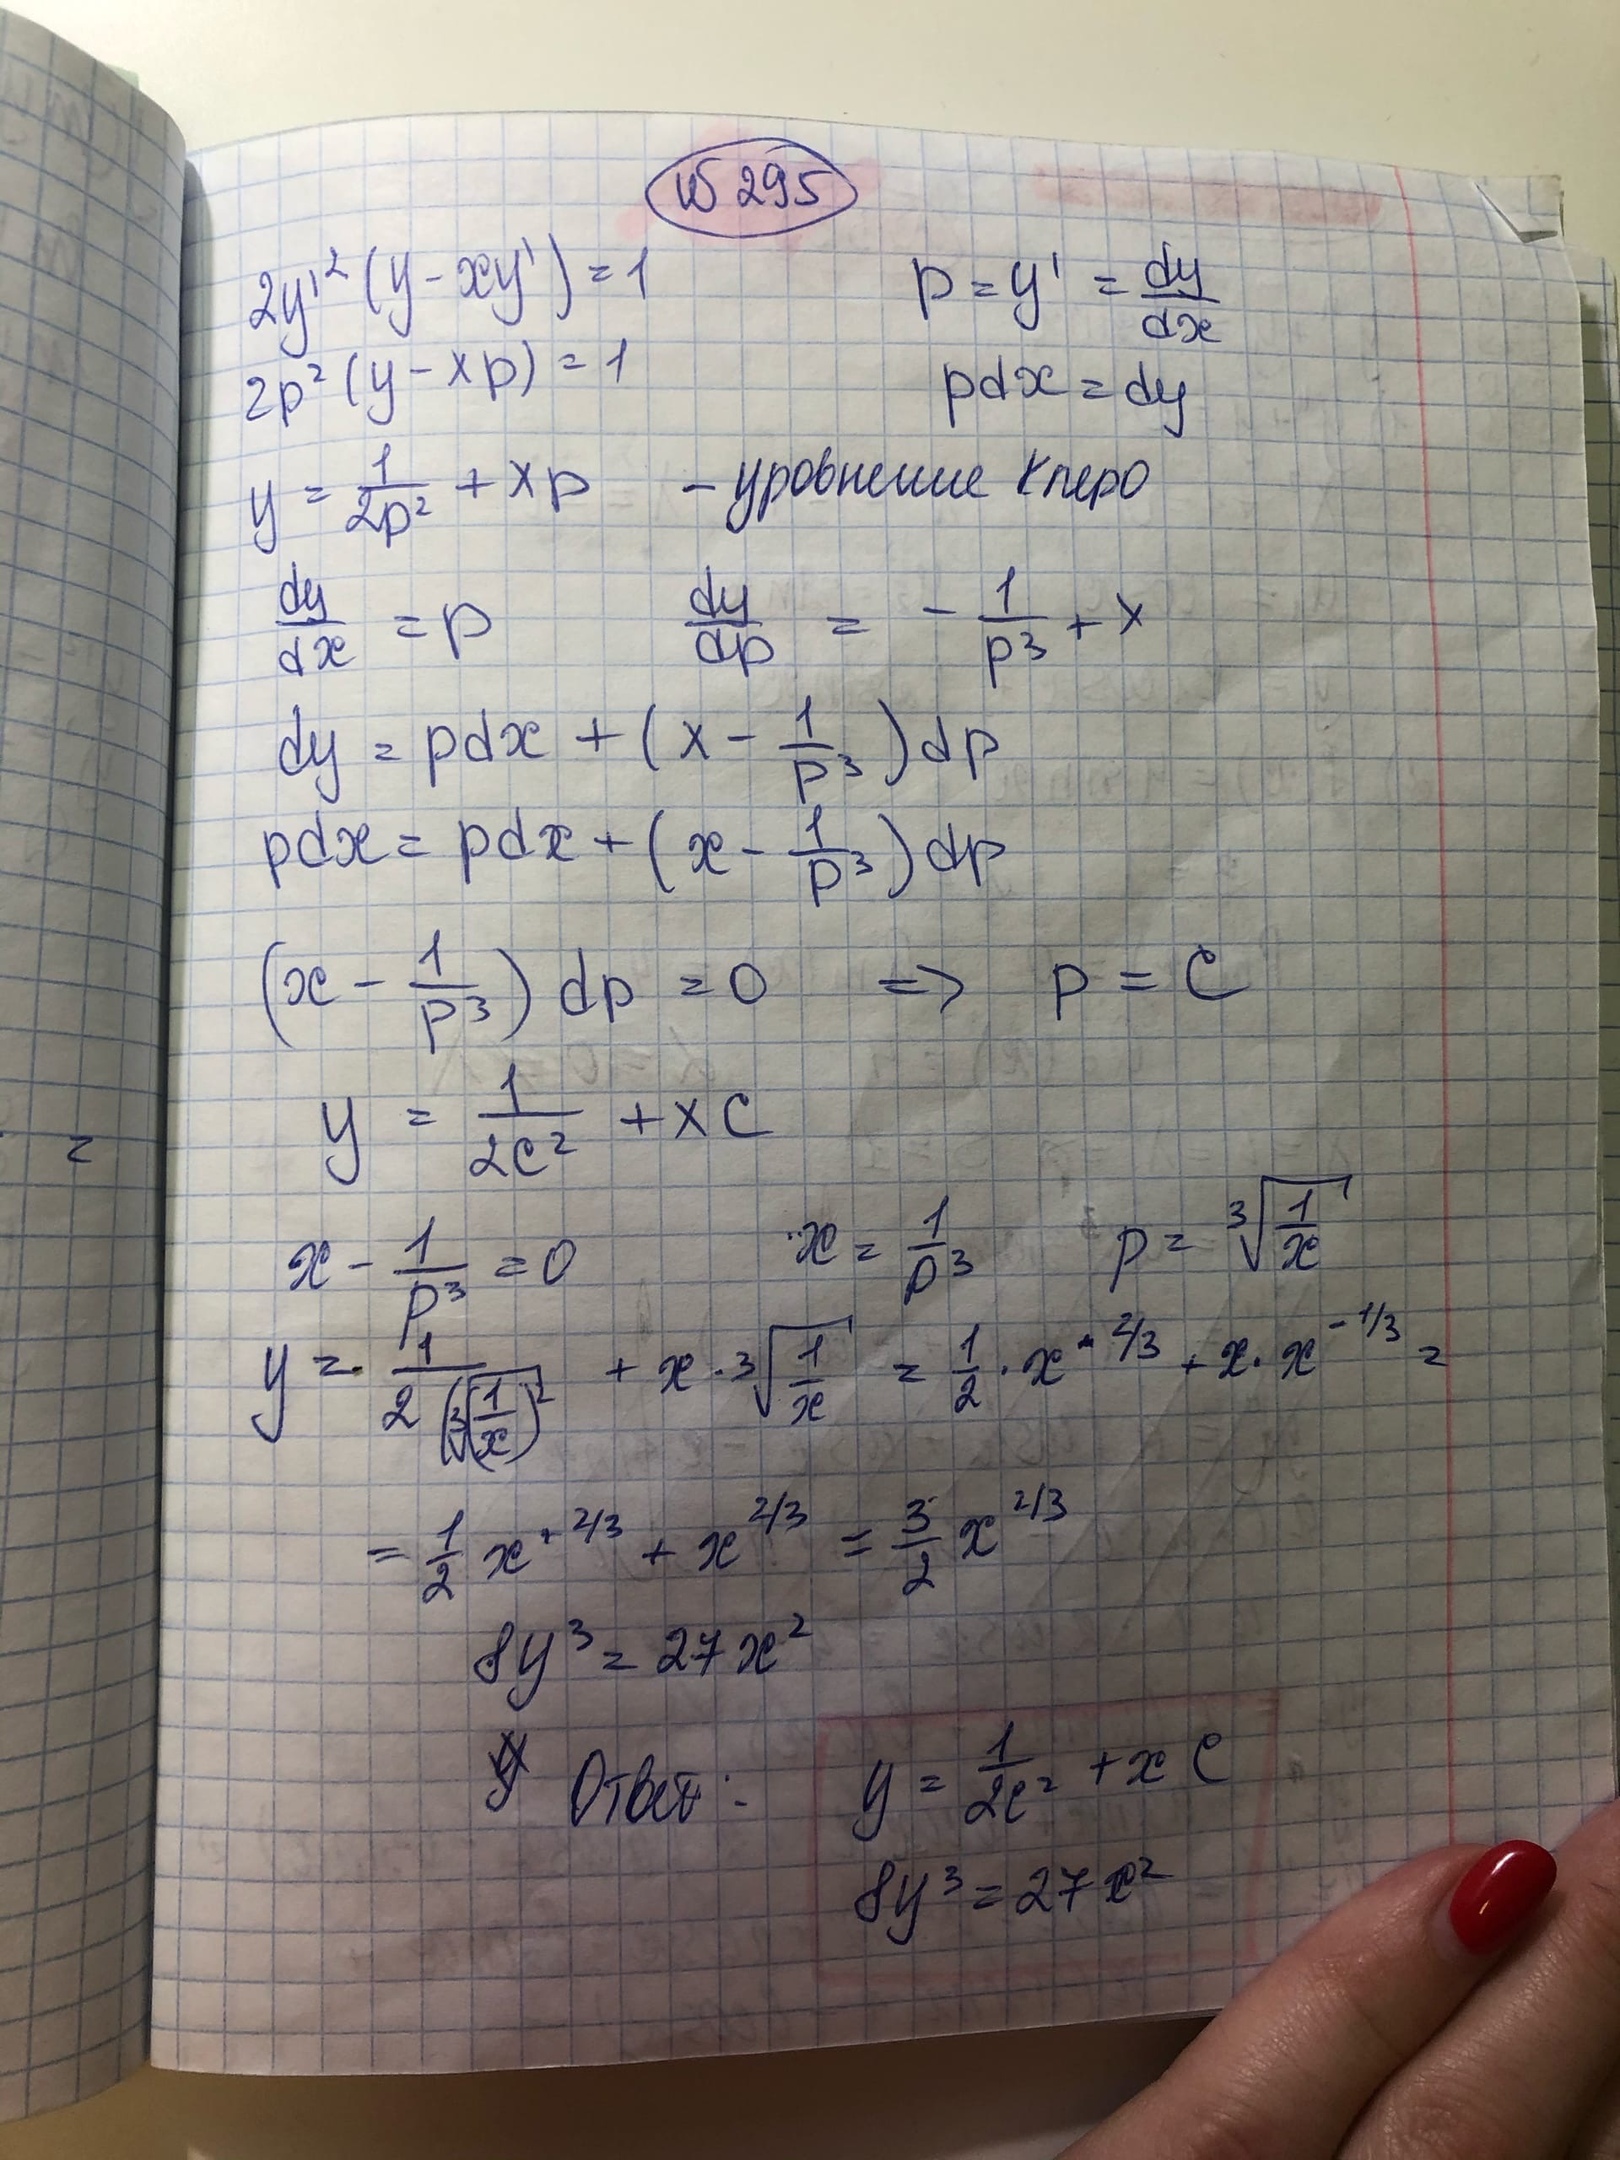 № 295
2y'² (y - xy') = 1   p = y' = dy/dx
2p² (y - xp) = 1   pdx = dy
y = 1/2p² + xp - уровнение Клеро
dy/dx = p   dy/dp = - 1/p³ + x
dy = pdx + (x - 1/p³) dp
pdx = pdx + (x - 1/p³) dp
(x - 1/p³) dp = 0 => p = C
y = 1/2C² + xC
x - 1/p³ = 0   x = 1/p³   p = ∛(1/x)
y = 1/2(∛(1/x))² + x · ∛(1/x) = 1/2 · x^2/3 + x · x^-1/3 =
= 1/2 x^+2/3 + x^2/3 = 3/2 x^2/3
8y³ = 27x²
Ответ: y = 1/2C² + xC
8y³ = 27x²
=